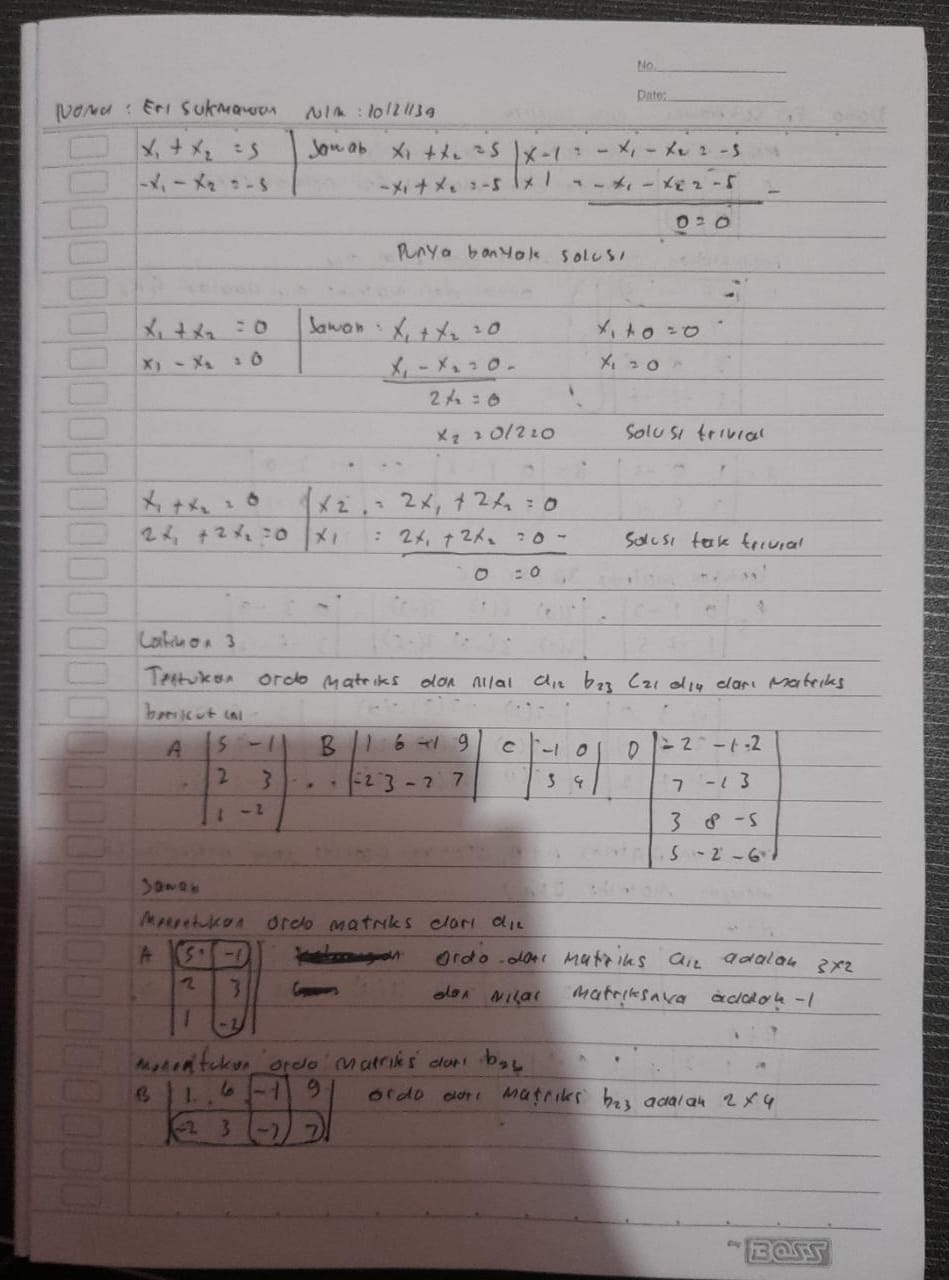 No.
Date:
Nama : Eri Sukmawan NIM : 10121139
x₁ + x₂ = 5 | Jawab x₁ + x₂ = 5 | x -1 = - x₁ - x₂ = -5
-x₁ - x₂ = -5 | -x₁ + x₂ = -5 | x 1 = - x₁ - x₂ = -5 -
0 = 0
Punya banyak solusi
x₁ + x₂ = 0 | Jawab : x₁ + x₂ = 0 x₁ + 0 = 0
x₁ - x₂ = 0 | x₁ - x₂ = 0 - x₁ = 0
2x₂ = 0
x₂ = 0/2=0 Solusi trivial
x₁ + x₂ = 0 | x2 = 2x₁ + 2x₂ = 0
2x₁ + 2x₂ = 0 | x1 = 2x₁ + 2x₂ = 0 - Solusi tak trivial
0 = 0
Latihan 3
Tentukan ordo matriks dan nilai a₁₂ b₂₃ c₂₁ d₁₄ dari matriks
berikut ini
A | 5 -1 | B | 1 6 -1 9 | C | -1 0 | D | -2 -1 2 |
| 2 3 | | -2 3 -7 7 | | 3 4 | | 7 -1 3 |
| 1 -2 | | 3 8 -5 |
| 5 -2 -6 |
Jawab
Menentukan ordo matriks dari a₁₂
A | 5 -1 | ordo dari matriks a₁₂ adalah 3x2
| 2 3 | dan nilai matriksnya adalah -1
| 1 -2 |
Menentukan ordo matriks dari b₂₃
B | 1 6 -1 9 | ordo dari matriks b₂₃ adalah 2 x 4
| -2 3 -7 7 |
BOSS